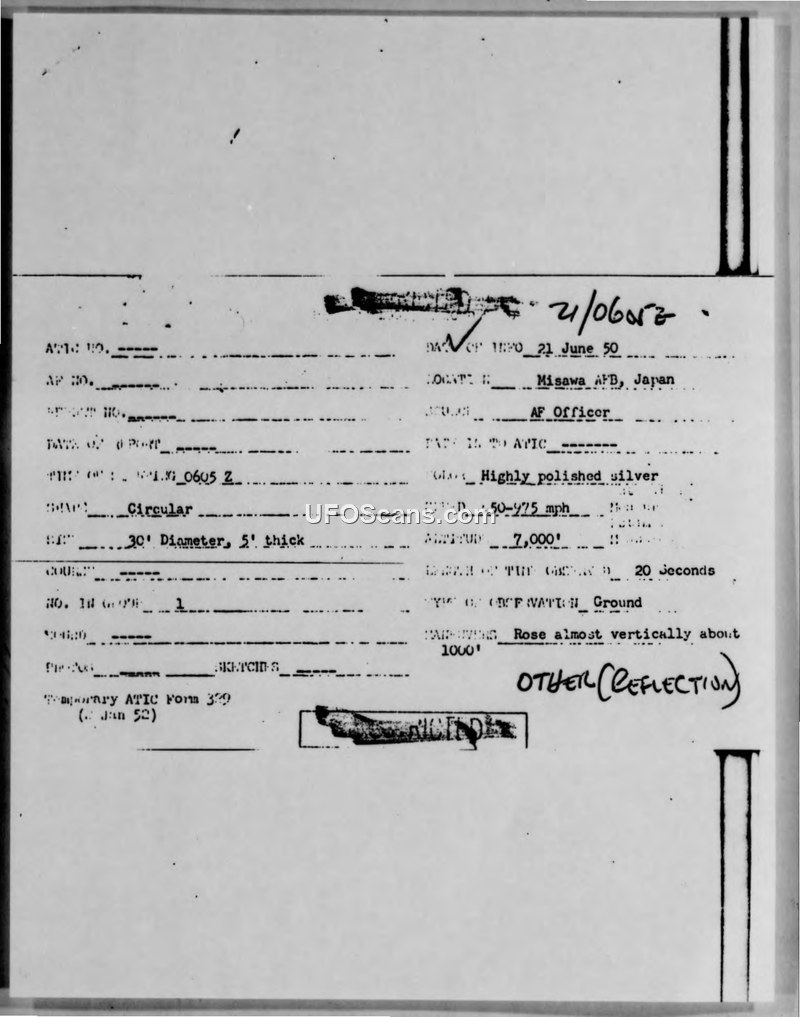 21/0605Z
ATIC NO. -----
DATE OF INFO 21 June 50
AF NO. -------
LOCATION Misawa AFB, Japan
REPORT NO. ------
SOURCE AF Officer
DATE OF REPORT -----
DATE IN TO ATIC -------
TIME OF SIGHTING 0605 Z
COLOR Highly polished silver
SHAPE Circular
SPEED 50-975 mph
SIZE 30' Diameter, 5' thick
ALTITUDE 7,000'
COURSE -----
LENGTH OF TIME OBSERVED 20 Seconds
NO. IN GROUP 1
TYPE OF OBSERVATION Ground
SOUND -----
MANEUVERS Rose almost vertically about
1000'
PHOTOS ------ SKETCHES -----
Temporary ATIC Form 329
Jan 52)
OTHER (REFLECTION)
UFOScans.com